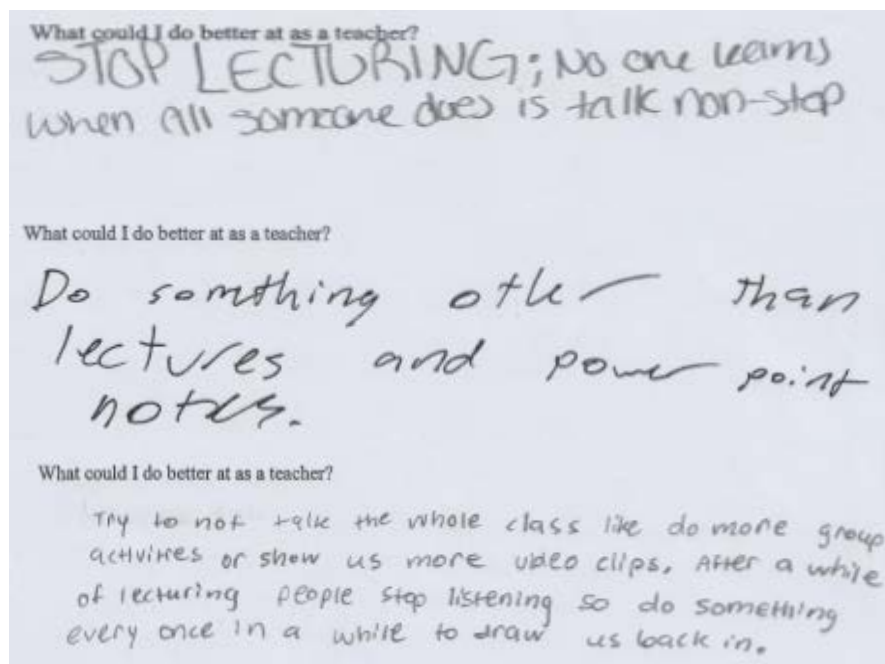 What could I do better at as a teacher?
STOP LECTURING; No one learns
when all someone does is talk non-stop
What could I do better at as a teacher?
Do something other than
lectures and power point
notes.
What could I do better at as a teacher?
Try to not talk the whole class like do more group
activites or show us more video clips. After a while
of lecturing people stop listening so do something
every once in a while to draw us back in.